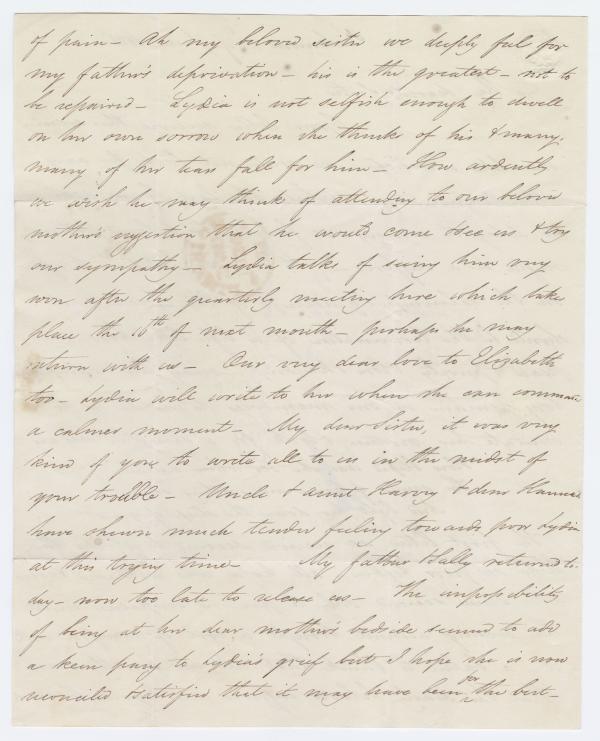 of pain - Ah my beloved sister we deeply feel for
my father's deprivation - his is the greatest - not to
be repaired - Lydia is not selfish enough to dwell
on her own sorrow when she thinks of his & many,
many of her tears fall for him - How ardently
we wish he may think of attending to our belovd
mother's suggestion that he would come & see us & try
our sympathy - Lydia talks of seeing him very
soon after the quarterly meeting here which take
place the 16th of next month - perhaps he may
return with us - Our very dear love to Elizabeth
too - Lydia will write to her when she can command
a calmer moment - My dear Sister, it was very
kind of you to write all to us in the midst of
your trouble - Uncle & aunt Harvey & dear Hannah
have shewn much tender feeling towards poor Lydia
at this trying time - My father & Sally returned to-
day - now too late to release us - The impossibility
of being at her dear mother's bedside seemed to add
a keen pang to Lydia's grief but I hope she is now
reconciled & satisfied that it may have been for the best -